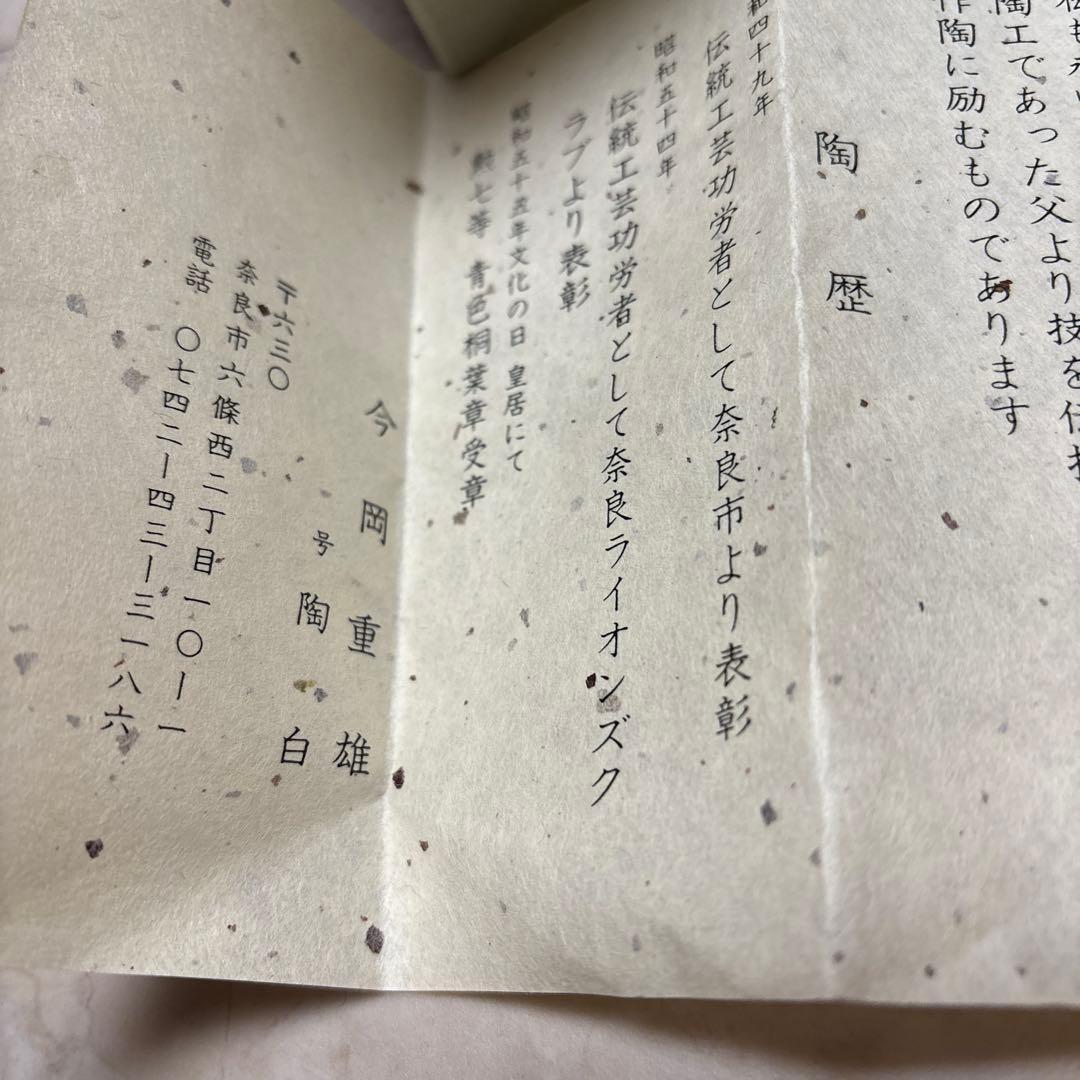 陶工であった父より技を伝
作陶に励むものであります
陶歴
昭和四十九年
伝統工芸功労者として奈良市より表彰
昭和五十四年
伝統工芸功労者として奈良ライオンズク
ラブより表彰
昭和五十五年文化の日 皇居にて
勲七等 青色桐葉章受章
今岡重雄
号 陶白
〒六三〇
奈良市六條西二丁目一〇ー一
電話 〇七四二ー四三ー三一八六